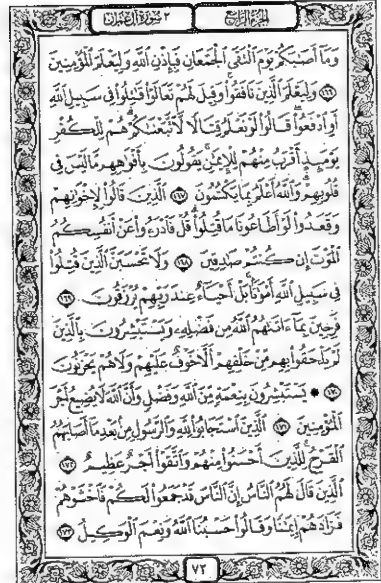 ٣ سورة آل عمران
الجزء الرابع
وَمَا أَصَٰبَكُمْ يَوْمَ ٱلْتَقَى ٱلْجَمْعَانِ فَبِإِذْنِ ٱللَّهِ وَلِيَعْلَمَ ٱلْمُؤْمِنِينَ
١٦٦ وَلِيَعْلَمَ ٱلَّذِينَ نَافَقُوا۟ۚ وَقِيلَ لَهُمْ تَعَالَوْا۟ قَٰتِلُوا۟ فِى سَبِيلِ ٱللَّهِ
أَوِ ٱدْفَعُوا۟ۖ قَالُوا۟ لَوْ نَعْلَمُ قِتَالًا لَّٱتَّبَعْنَٰكُمْۗ هُمْ لِلْكُفْرِ
يَوْمَئِذٍ أَقْرَبُ مِنْهُمْ لِلْإِيمَٰنِۚ يَقُولُونَ بِأَفْوَٰهِهِم مَّا لَيْسَ فِى
قُلُوبِهِمْۗ وَٱللَّهُ أَعْلَمُ بِمَا يَكْتُمُونَ ١٦٧ ٱلَّذِينَ قَالُوا۟ لِإِخْوَٰنِهِمْ
وَقَعَدُوا۟ لَوْ أَطَاعُونَا مَا قُتِلُوا۟ۗ قُلْ فَٱدْرَءُوا۟ عَنْ أَنفُسِكُمُ
ٱلْمَوْتَ إِن كُنتُمْ صَٰدِقِينَ ١٦٨ وَلَا تَحْسَبَنَّ ٱلَّذِينَ قُتِلُوا۟
فِى سَبِيلِ ٱللَّهِ أَمْوَٰتًۢاۚ بَلْ أَحْيَآءٌ عِندَ رَبِّهِمْ يُرْزَقُونَ ١٦٩
فَرِحِينَ بِمَآ ءَاتَىٰهُمُ ٱللَّهُ مِن فَضْلِهِۦ وَيَسْتَبْشِرُونَ بِٱلَّذِينَ
لَمْ يَلْحَقُوا۟ بِهِم مِّنْ خَلْفِهِمْ أَلَّا خَوْفٌ عَلَيْهِمْ وَلَا هُمْ يَحْزَنُونَ
١٧٠ ۞ يَسْتَبْشِرُونَ بِنِعْمَةٍ مِّنَ ٱللَّهِ وَفَضْلٍ وَأَنَّ ٱللَّهَ لَا يُضِيعُ أَجْرَ
ٱلْمُؤْمِنِينَ ١٧١ ٱلَّذِينَ ٱسْتَجَابُوا۟ لِلَّهِ وَٱلرَّسُولِ مِنۢ بَعْدِ مَآ أَصَابَهُمُ
ٱلْقَرْحُۚ لِلَّذِينَ أَحْسَنُوا۟ مِنْهُمْ وَٱتَّقَوْا۟ أَجْرٌ عَظِيمٌ ١٧٢
ٱلَّذِينَ قَالَ لَهُمُ ٱلنَّاسُ إِنَّ ٱلنَّاسَ قَدْ جَمَعُوا۟ لَكُمْ فَٱخْشَوْهُمْ
فَزَادَهُمْ إِيمَٰنًا وَقَالُوا۟ حَسْبُنَا ٱللَّهُ وَنِعْمَ ٱلْوَكِيلُ ١٧٣
٧٢